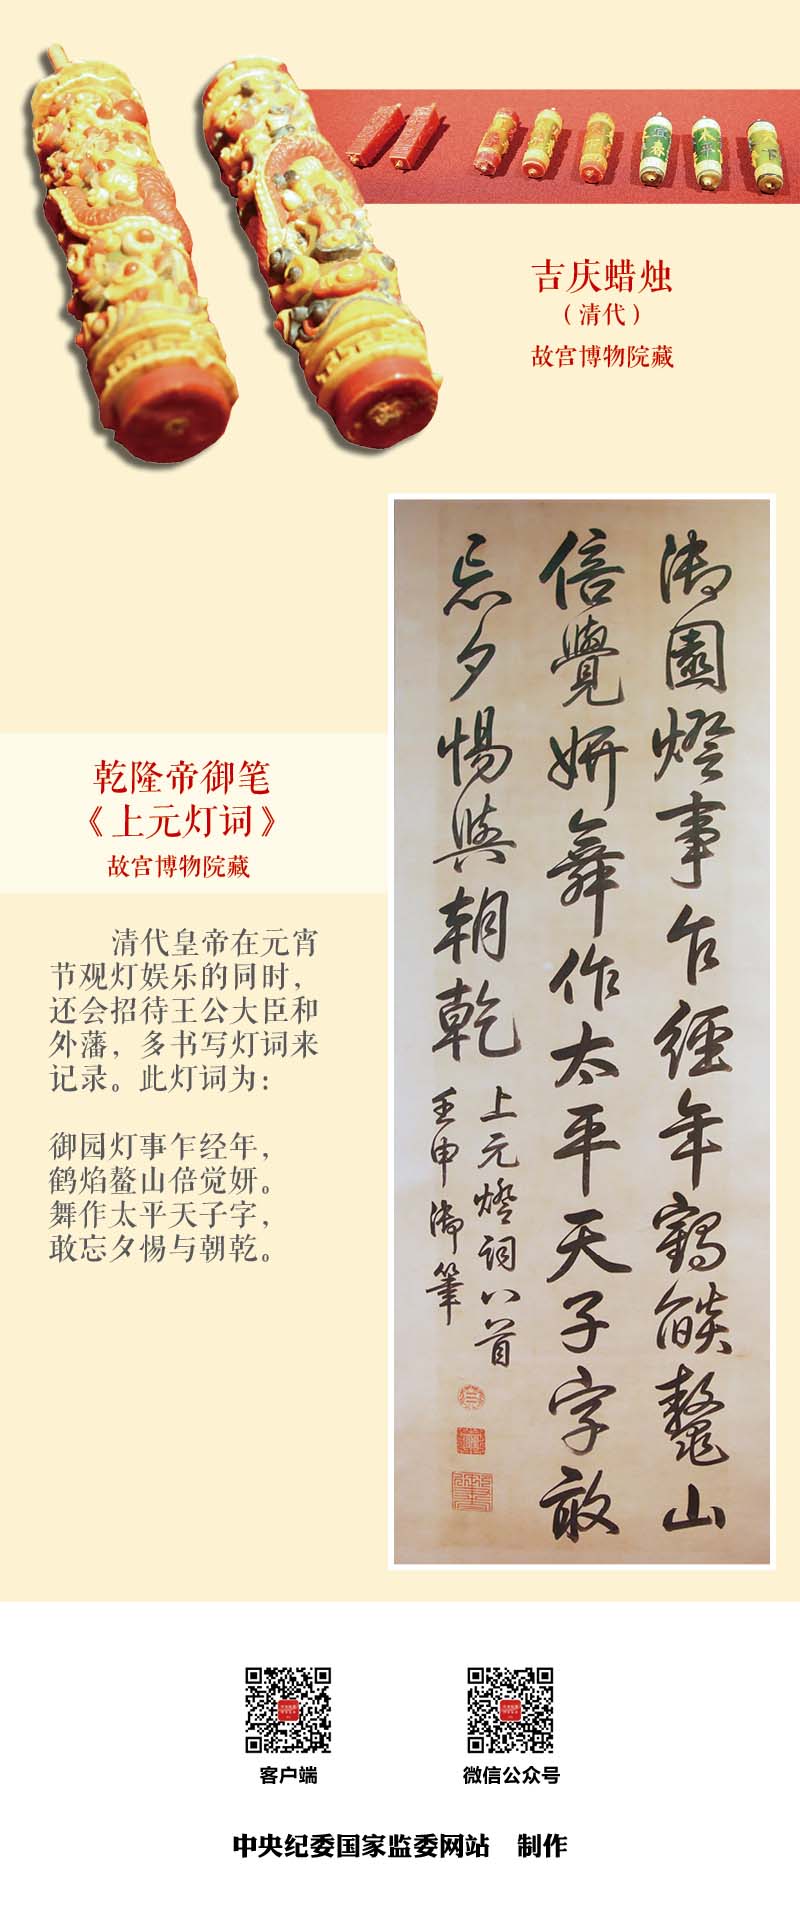 宜春
太平
下
吉庆蜡烛
（清代）
故宫博物院藏
乾隆帝御笔
《上元灯词》
故宫博物院藏
清代皇帝在元宵
节观灯娱乐的同时，
还会招待王公大臣和
外藩，多书写灯词来
记录。此灯词为：
御园灯事乍经年，
鹤焰鳌山倍觉妍。
舞作太平天子字，
敢忘夕惕与朝乾。
御園燈事乍經年鶴燄鼇山
倍覺妍舞作太平天子字敢
忘夕惕與朝乾
上元燈詞八首
壬申御筆
客户端
微信公众号
中央纪委国家监委网站 制作